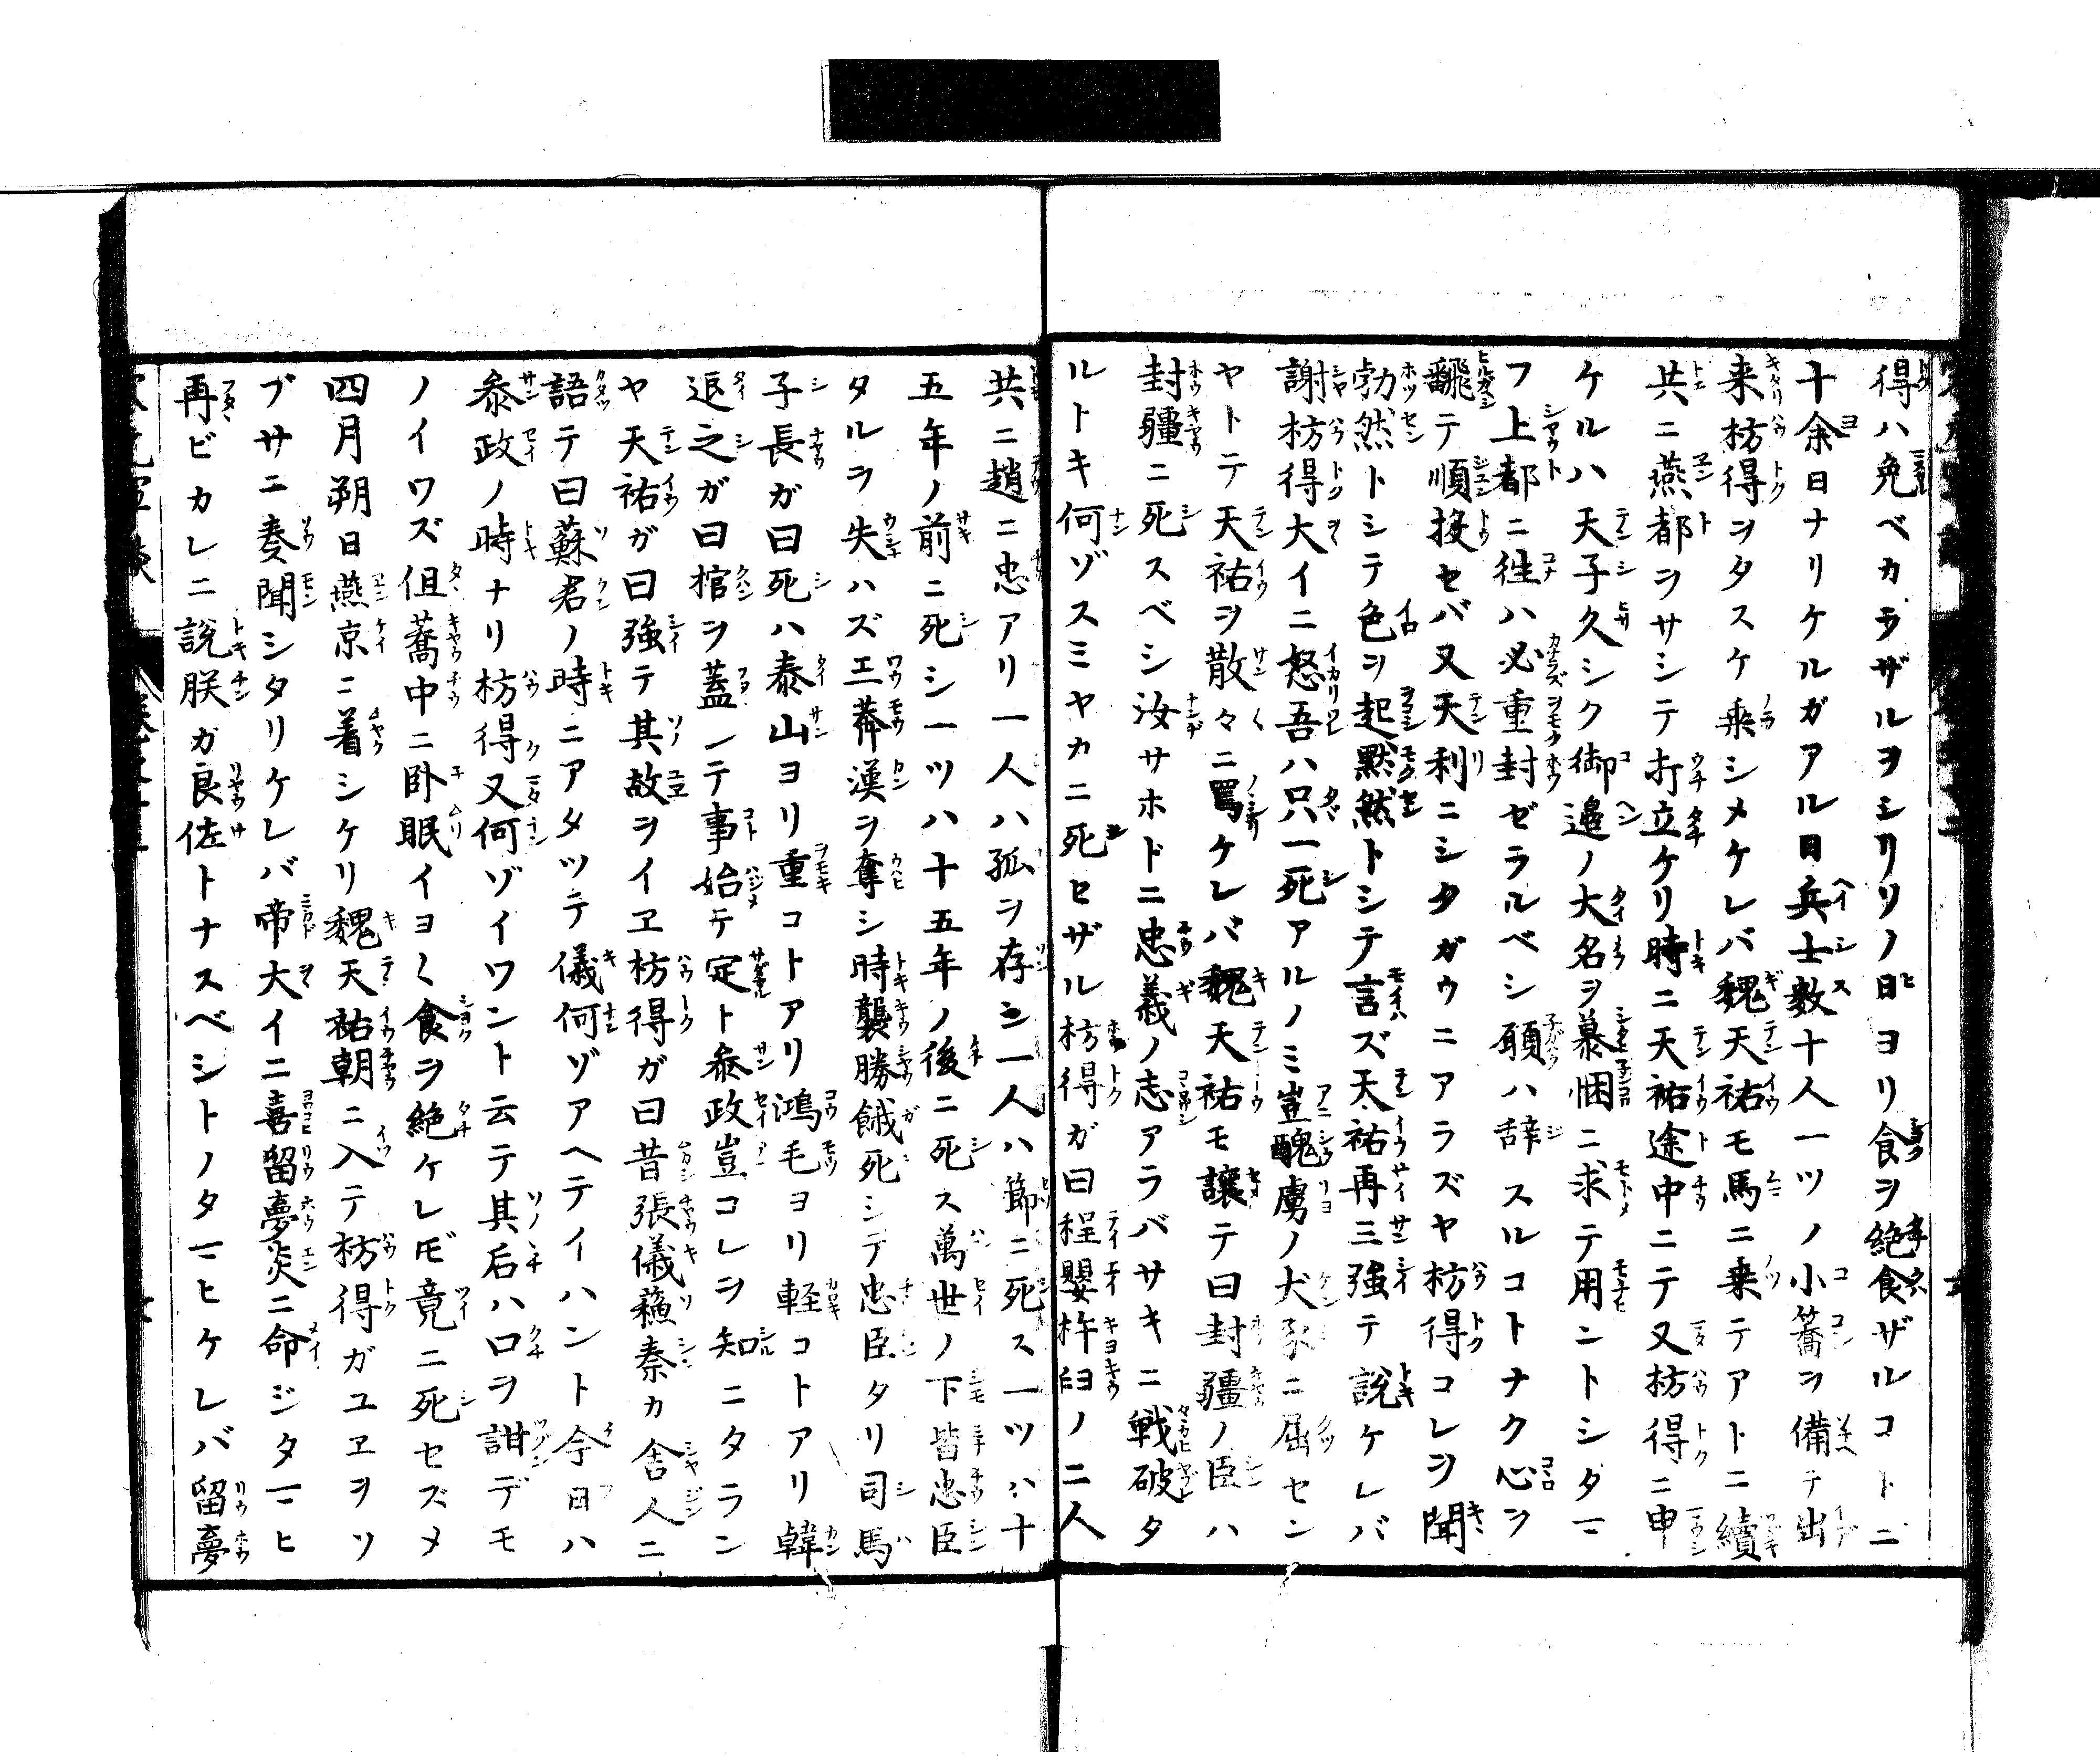 得ハ免ベカラザルヲシリソノ日ヨリ食ヲ絶食ザルコトニ
十余日ナリケルガアル日兵士数十人一ツノ小簥ヲ備テ出
来枋得ヲタスケ乗シメケレバ魏天祐モ馬ニ乗テアトニ續
共ニ燕都ヲサシテ打立ケリ時ニ天祐途中ニテ又枋得ニ申
ケルハ天子久シク御邉ノ大名ヲ慕悃ニ求テ用ントシタマ
フ上都ニ徃ハ必重封ゼラルベシ願ハ辞スルコトナク心ヲ
飜テ順投セバ又天利ニシタガウニアラズヤ枋得コレヲ聞
勃然トシテ色ヲ起黙然トシテ言ズ天祐再三強テ説ケレバ
謝枋得大イニ怒吾ハ只一死アルノミ豈醜虜ノ犬豕ニ屈セン
ヤトテ天祐ヲ散々ニ罵ケレバ魏天祐モ譲テ曰封疆ノ臣ハ
封疆ニ死スベシ汝サホドニ忠義ノ志アラバサキニ戦破タ
ルトキ何ゾスミヤカニ死セザル枋得ガ曰程嬰杵臼ノ二人
共ニ趙ニ忠アリ一人ハ孤ヲ存シ一人ハ節ニ死ス一ツハ十
五年ノ前ニ死シ一ツハ十五年ノ後ニ死ス萬世ノ下皆忠臣
タルヲ失ハズ王莽漢ヲ奪シ時龔勝餓死シテ忠臣タリ司馬
子長ガ曰死ハ泰山ヨリ重コトアリ鴻毛ヨリ軽コトアリ韓
退之ガ曰棺ヲ蓋ノテ事始テ定ト叅政豈コレヲ知ニタラン
ヤ天祐ガ曰強テ其故ヲイヱ枋得ガ曰昔張儀蘓秦カ舎人ニ
語テ曰蘇君ノ時ニアタツテ儀何ゾアヘテイハント今日ハ
叅政ノ時ナリ枋得又何ゾイワント云テ其后ハ口ヲ詌デモ
ノイワズ但蕎中ニ卧眠イヨ〱食ヲ絶ケレドモ竟ニ死セズメ
四月朔日燕京ニ着シケリ魏天祐朝ニ入テ枋得ガユヱヲツ
ブサニ奏聞シタリケレバ帝大イニ喜留夢炎ニ命ジタマヒ
再ビカレニ説朕ガ良佐トナスベシトノタマヒケレバ留夢